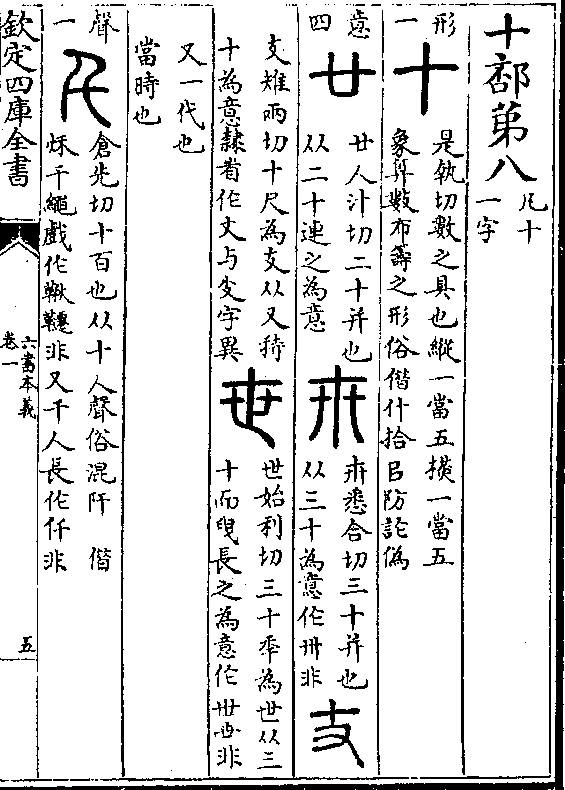 十部第八
凡十
一字
形一
十
是執切數之具也縱一當五橫一當五
象筭數布籌之形俗借什拾㠯防訛偽
意四
廿
廿人汁切二十并也
从二十連之為意
卅
卅悉合切三十并也
从三十為意作卅非
支
支雉兩切十尺為支从又持
十為意隸省作丈与支字異
世
世始利切三十秊為世从三
十而曳長之為意作世丗非
又一代也
當時也
聲一
千
倉先切十百也从十人聲俗混阡借
秌千繩戲作鞦韆非又千人長作仟非
欽定四庫全書
六書本義
卷一
五